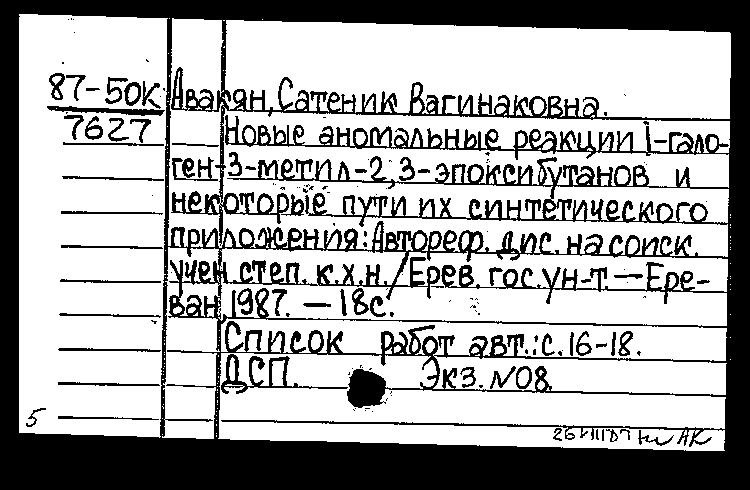 87-50К Авакян, Сатеник Вагинаковна.
7627 Новые аномальные реакции 1-гало-
ген-3-метил-2,3-эпоксибутанов и
некоторые пути их синтетического
приложения: Автореф. дис. на соиск.
учен. степ. к.х.н. / Ерев. гос. ун-т. — Ере-
ван, 1987. — 18с.
Список работ авт.: с. 16-18.
ДСП. Экз. N08.
5
АК